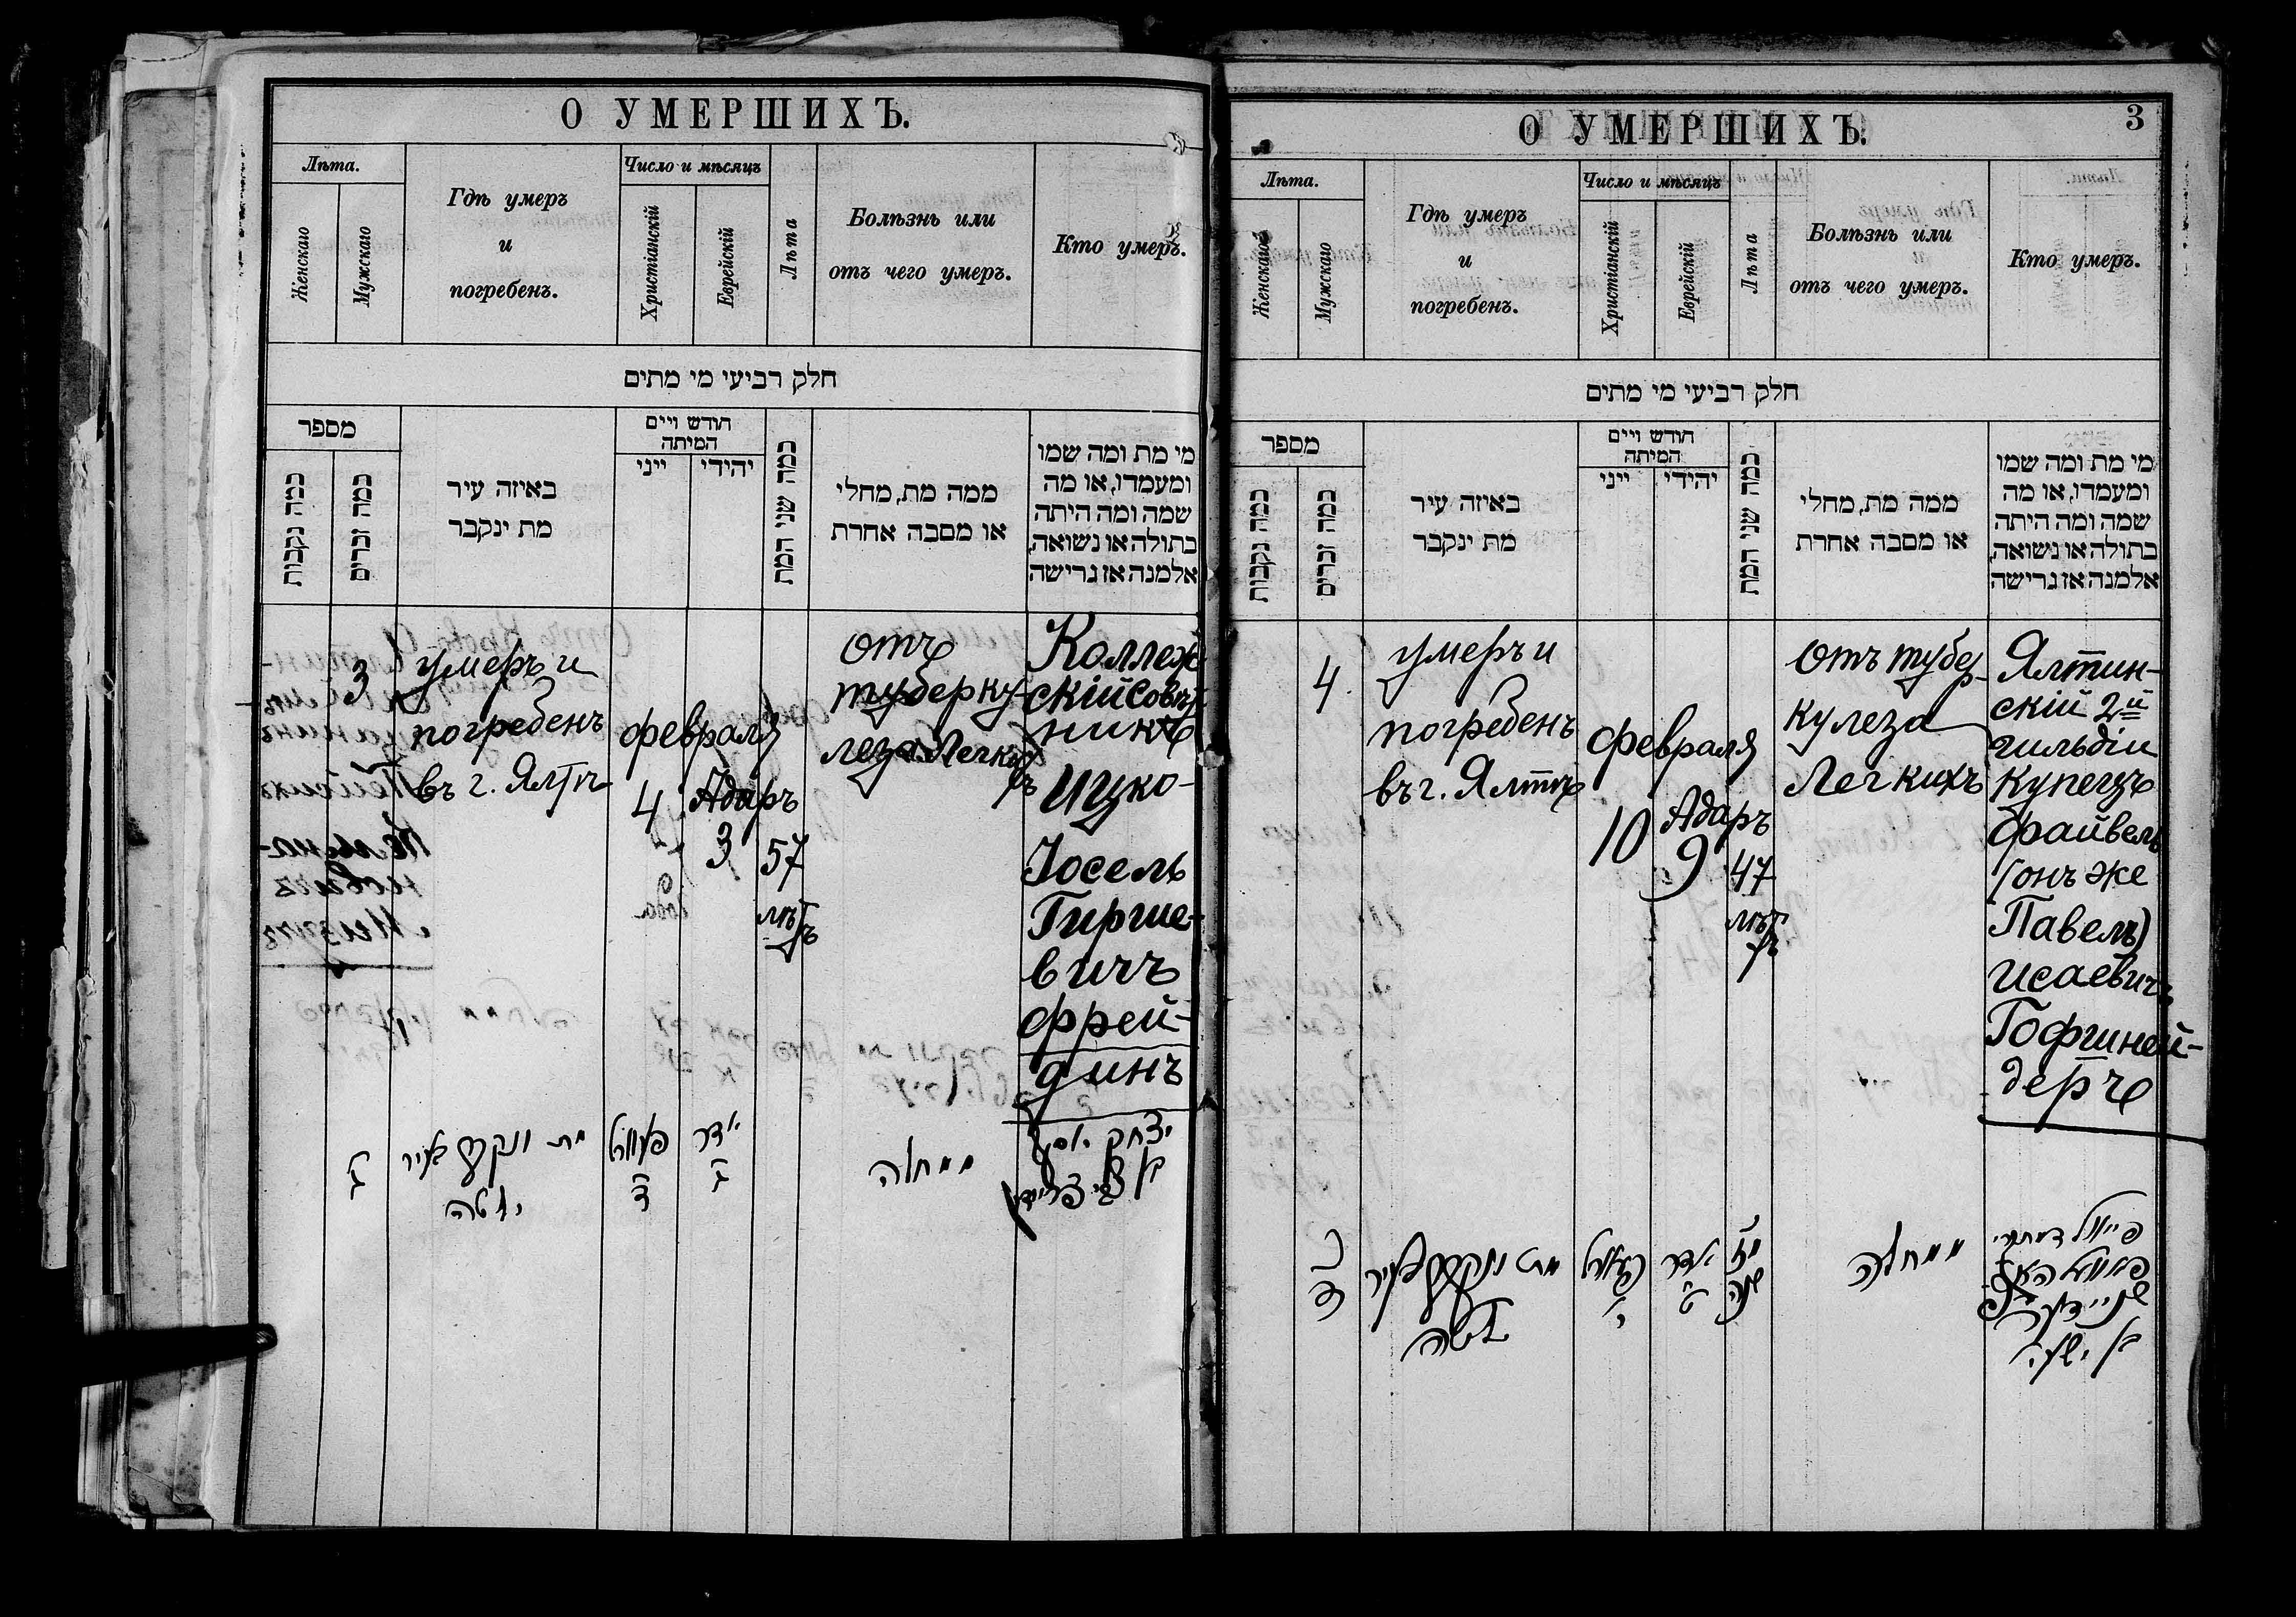 О УМЕРШИХЪ.
Лѣта.
Женскаго
Мужскаго
Гдѣ умеръ
и
погребенъ.
Число и мѣсяцъ
Христіанскій
Еврейскій
Лѣта
Болѣзнь или
отъ чего умеръ.
Кто умеръ.
חלק רביעי מי מתים
מספר
כמה נקבות
כמה זכרים
באיזה עיר
מת ינקבר
חודש ויים
המיתה
ייני
יהודי
כמה שני המת
ממה מת, מחלי
או מסבה אחרת
מי מת ומה שמו
ומעמדו, או מה
שמה ומה היתה
בתולה או נשואה,
אלמנה אז גרישה
3
умеръ и
погребенъ
въ г. Ялтѣ
февраля
4
Адаръ
3
57
лѣтъ
отъ
туберку-
леза Легкихъ
Коллеж
скій Совѣт
никъ
Ицко-
Іосель
Гирше-
вичъ
Фрей-
динъ
ג
מת ונקבר בעיר
יאלטה
ד
אדר
ג
ממחלה
יצחק יוסף
О УМЕРШИХЪ.
3
Лѣта.
Женскаго
Мужскаго
Гдѣ умеръ
и
погребенъ.
Число и мѣсяцъ
Христіанскій
Еврейскій
Лѣта
Болѣзнь или
отъ чего умеръ.
Кто умеръ.
חלק רביעי מי מתים
מספר
כמה נקבות
כמה זכרים
באיזה עיר
מת ינקבר
חודש ויים
המיתה
ייני
יהודי
כמה שני המת
ממה מת, מחלי
או מסבה אחרת
מי מת ומה שמו
ומעמדו, או מה
שמה ומה היתה
בתולה או נשואה,
אלמנה אז גרישה
4.
умеръ и
погребенъ
въ г. Ялтѣ
февраля
10
Адаръ
9
47
лѣтъ
отъ тубер-
кулеза
Легкихъ
Ялтин-
скій 2й
гильдіи
купецъ
Файвель
(онъ же
Павелъ)
Исаевичъ
Гофшней-
деръ
ד
מת ונקבר בעיר
י
אדר
ט
מז
שנה
ממחלה